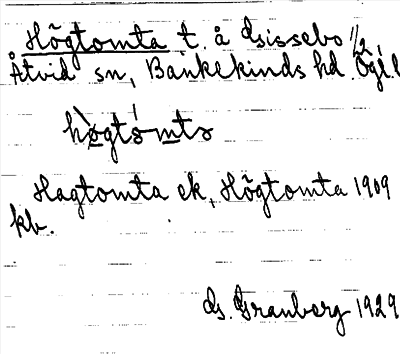 Högtomta t. å Gsissebo 1/2,
Åtvid sn, Bankekinds hd Ögl.
hògtómta
Hagtomta ek, Högtomta 1909
kb.
Gs. Granberg 1929